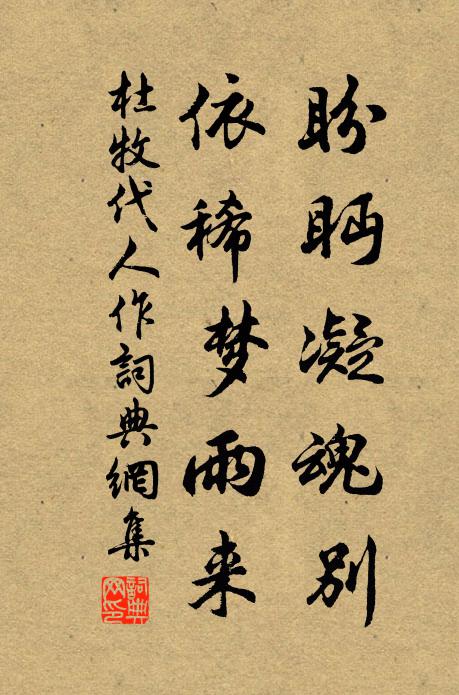 盼眄凝魂别
依稀梦雨来
杜牧代人作詞典網集
詞典网印